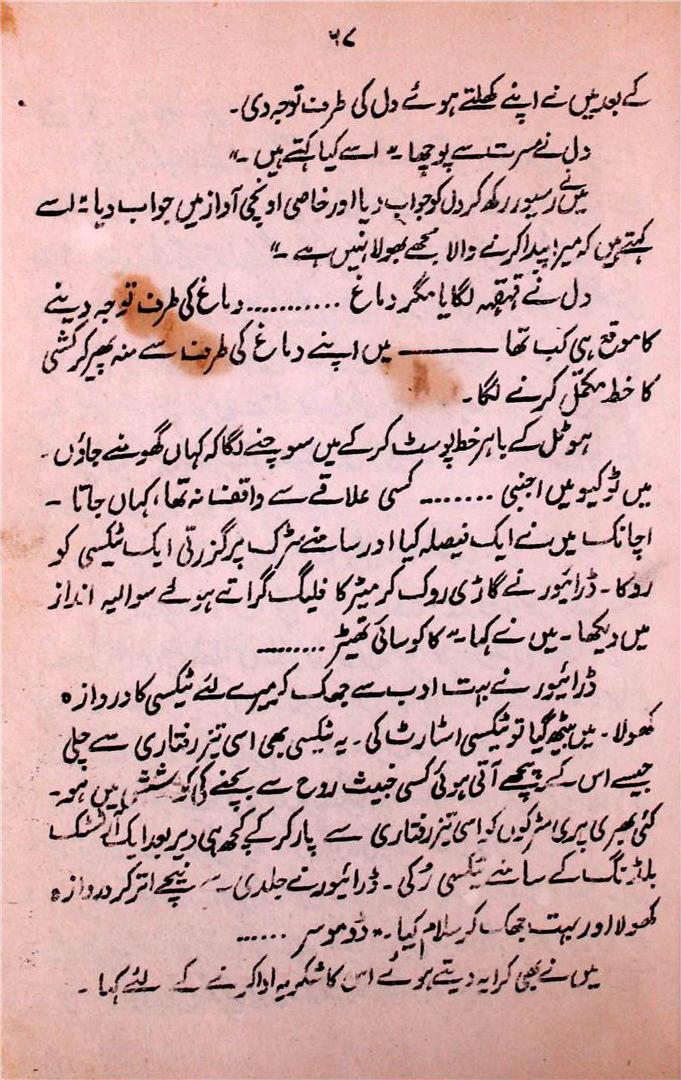 ۶۷
کے بعد میں نے اپنے کھلتے ہوئے دل کی طرف توجہ دی۔
دل نے مسرت سے پوچھا۔" اسے کیا کہتے ہیں۔"
میں نے رسیور رکھ کر دل کو جواب دیا اور خاصی اونچی آواز میں جواب دیا" اسے
کہتے ہیں کہ میرا پیدا کرنے والا مجھے بھولا نہیں ہے۔"
دل نے قہقہہ لگایا مگر دماغ ........... دماغ کی طرف توجہ دینے
کا موقع ہی کب تھا ——— میں اپنے دماغ کی طرف سے منہ پھیر کر کشی
کا خط مکمل کرنے لگا۔
ہوٹل کے باہر خط پوسٹ کر کے میں سوچنے لگا کہ کہاں گھومنے جاؤں۔
میں ٹوکیو میں اجنبی ........ کسی علاقے سے واقف نہ تھا، کہاں جاتا۔
اچانک میں نے ایک فیصلہ کیا اور سامنے سڑک پر گزرتی ایک ٹیکسی کو
روکا۔ ڈرائیور نے گاڑی روک کر میٹر کا فلیگ گراتے ہوئے سوالیہ انداز
میں دیکھا۔ میں نے کہا۔" کاکوسائی تھیٹر .........
ڈرائیور نے بہت ادب سے جھک کر میرے لئے ٹیکسی کا دروازہ
کھولا۔ میں بیٹھ گیا تو ٹیکسی اسٹارٹ کی۔ یہ ٹیکسی بھی اسی تیز رفتاری سے چلی
جیسے اس کے پیچھے آتی ہوئی کسی خبیث روح سے بچنے کی کوشش میں ہو۔
کئی بھری پری سڑکوں کو اسی تیز رفتاری سے پار کر کے کچھ ہی دیر بعد ایک
بلڈنگ کے سامنے ٹیکسی رُکی۔ ڈرائیور نے جلدی سے نیچے اتر کر دروازہ
کھولا اور بہت جھک کر سلام کیا۔" ڈوموسر ......
میں نے بھی کرایہ دیتے ہوئے اس کا شکریہ ادا کرنے کے لئے کہا۔